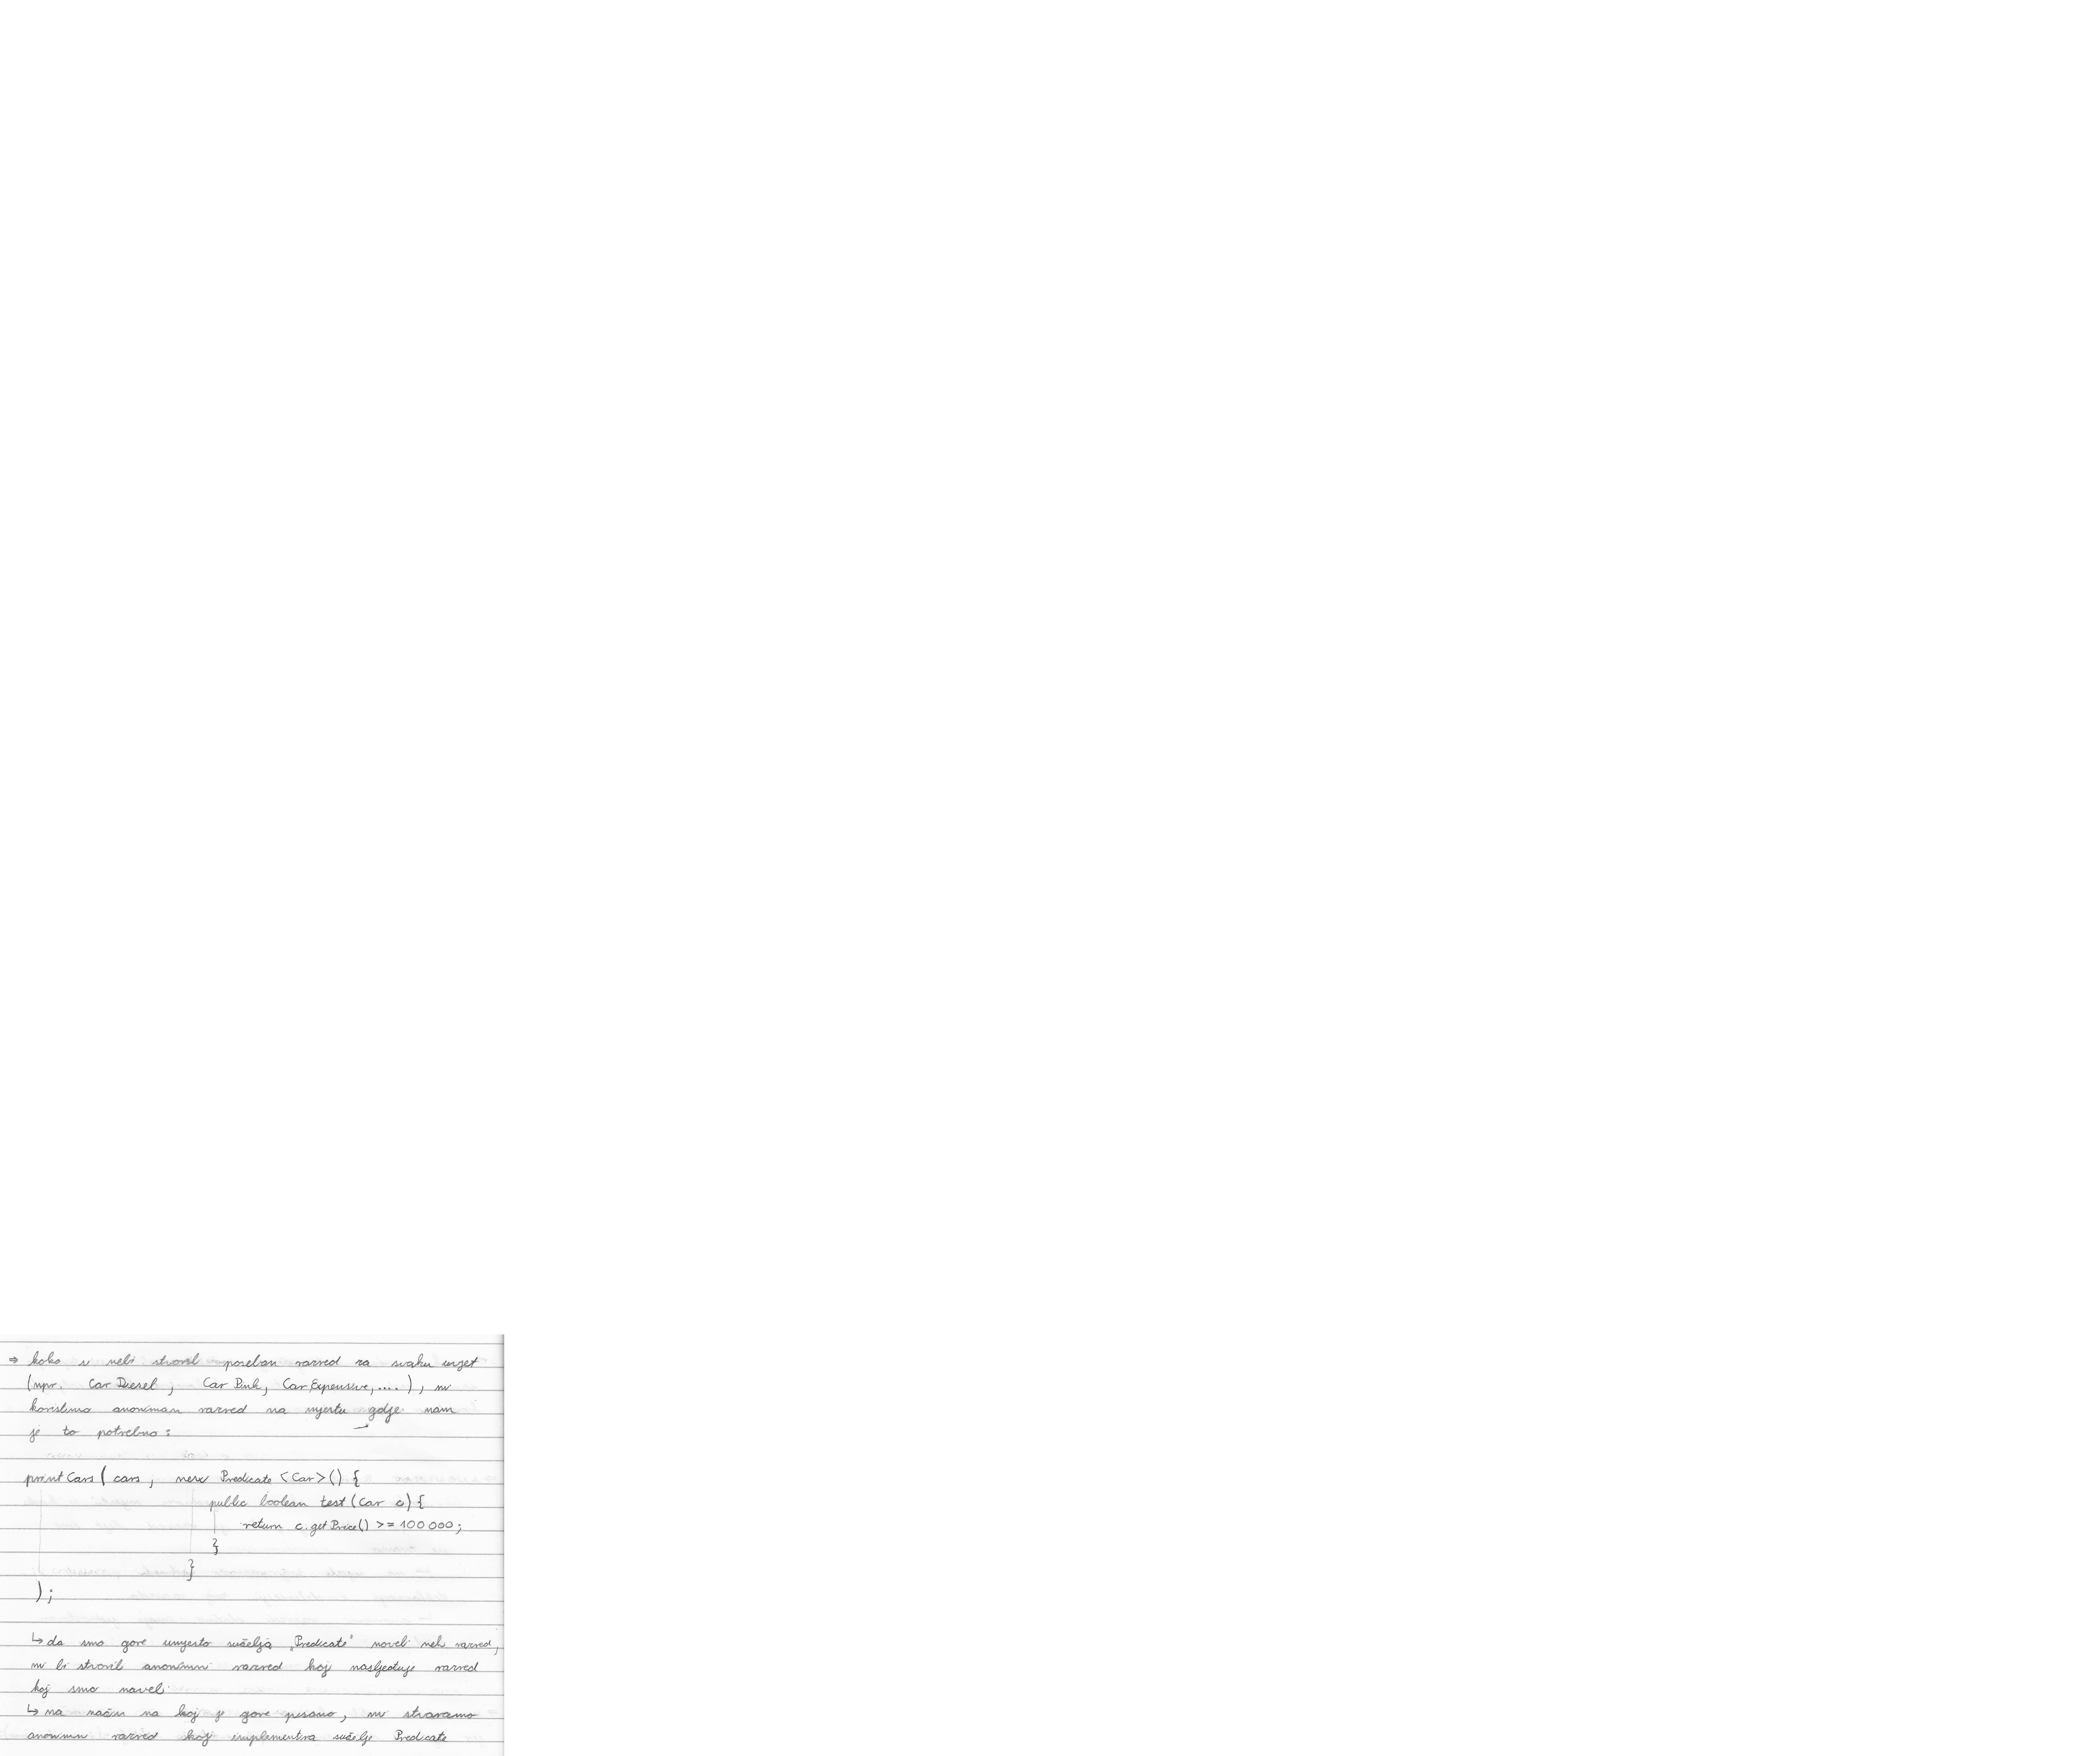 ⇒ kako si nebi stvorili poseban razred za svaku uvjet
(npr. CarDiesel, CarPink, CarExpensive, ....), mi
koristimo anoniman razred na mjestu gdje nam
je to potrebno:
printCars( cars, new Predicate <Car>() {
public boolean test (Car c) {
return c.getPrice() >= 100 000;
}
}
);
↳ da smo gore umjesto sučelja „Predicate" naveli neki razred,
mi bi stvorili anonimni razred koji nasljeđuje razred
koji smo naveli
↳ na način na koji je gore pisano, mi stvaramo
anonimni razred koji implementira sučelje Predicate